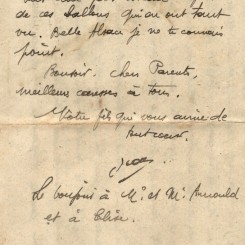 de ces ballons qu'on ont tant
vu. Belle Alsace je ne te connais
point.
Bonsoir. Chers Parents,
meilleurs caresses à tous.
Votre fils qui vous aime de
tout coeur.
Le bonjour à Mr et Me Arnauld
et à